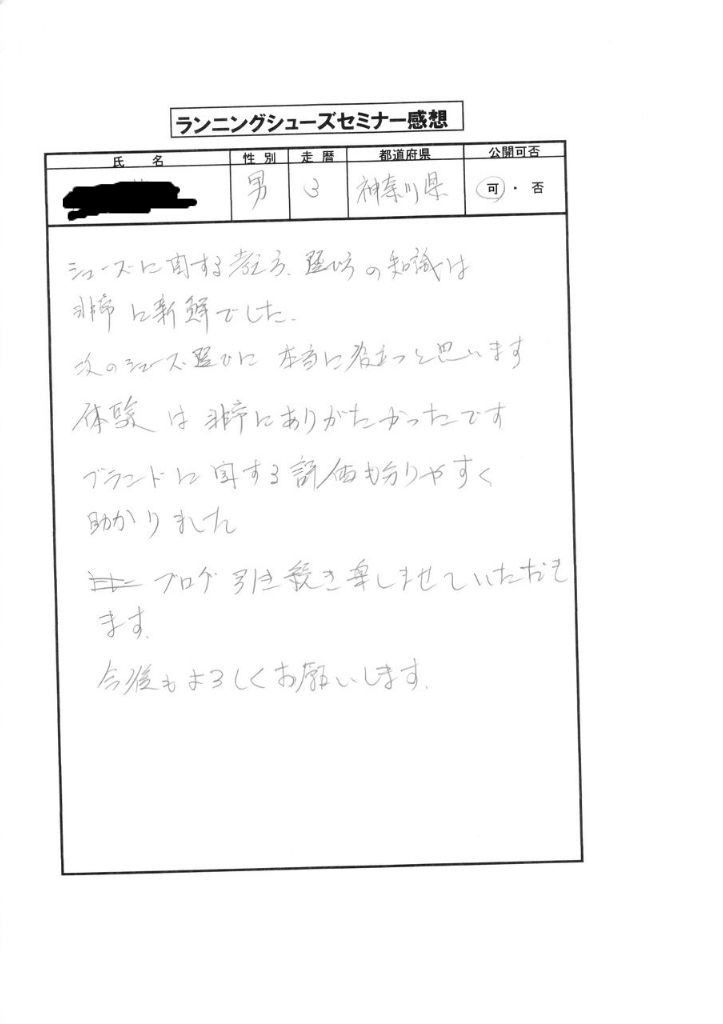 ランニングシューズセミナー感想
氏 名 性 別 走 暦 都道府県 公開可否
男 3 神奈川県 可 ・ 否
シューズに関する考え方、選び方の知識は
非常に新鮮でした。
次のシューズ選びに 本当に役立つと思います
体験 は 非常にありがたかったです
ブランドに関する評価も分りやすく
助かりました
ブログ引き続き楽しませていただき
ます。
今後もよろしくお願いします。